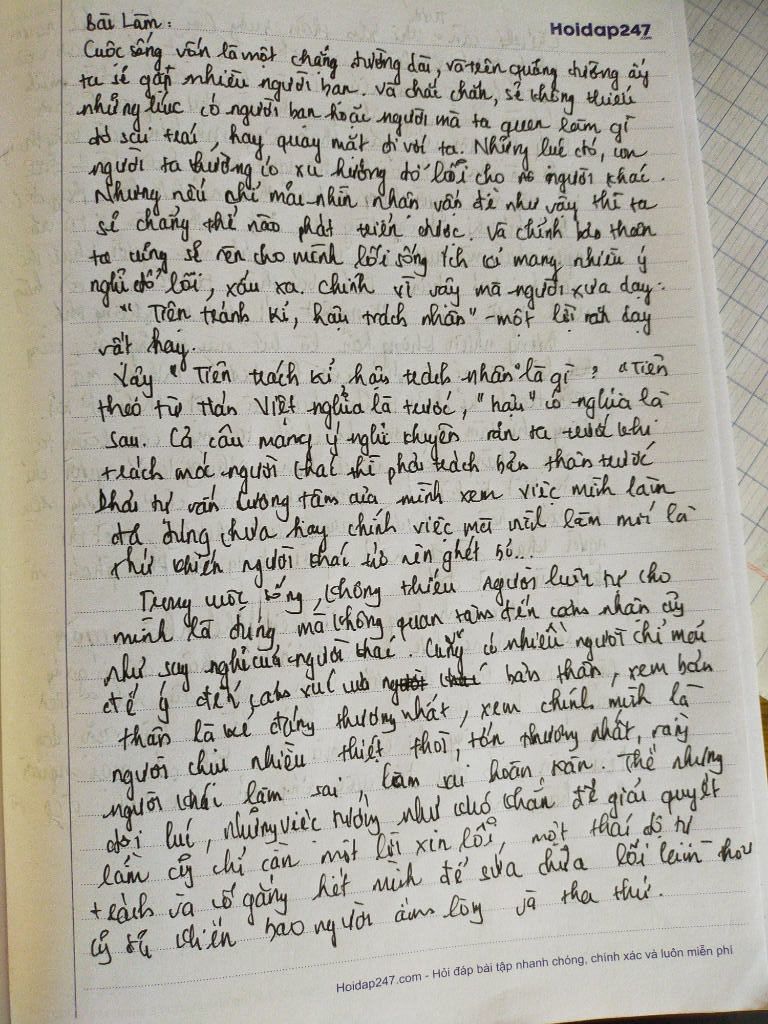 Bài Làm:
Hoidap247
.com
Cuộc sống vốn là một chặng đường dài, và trên quãng đường ấy
ta sẽ gặp nhiều người bạn. Và chắc chắn, sẽ không thiếu
những lúc có người bạn hoặc người mà ta quen làm gì
đó sai trái, hay quay mặt đi với ta. Những lúc đó, con
người ta thường có xu hướng đổ lỗi cho người khác.
Nhưng nếu chỉ mãi nhìn nhận vấn đề như vậy thì ta
sẽ chẳng thể nào phát triển được. Và chính bản thân
ta cũng sẽ rèn cho mình lối sống ích kỉ mang nhiều ý
nghĩ đổ lỗi, xấu xa. Chính vì vậy mà người xưa dạy:
"Tiên trách kỉ, hậu trách nhân" - một lời răn dạy
rất hay.
Vậy "Tiên trách kỉ, hậu trách nhân" là gì? "Tiên
theo từ Hán Việt nghĩa là trước, "hậu" có nghĩa là
sau. Cả câu mang ý nghĩ khuyên răn ta trước khi
trách móc người khác thì phải trách bản thân trước
Phải tự vấn lương tâm của mình xem việc mình làm
đã đúng chưa hay chính việc mà mình làm mới là
thứ khiến người khác trở nên ghét bỏ...
Trong cuộc sống, không thiếu người luôn tự cho
mình là đúng mà không quan tâm đến cảm nhận cũng
như suy nghĩ của người khác. Cũng có nhiều người chỉ mải
để ý đến cảm xúc của bản thân, xem bản
thân là kẻ đáng thương nhất, xem chính mình là
người chịu nhiều thiệt thòi, tổn thương nhất, rằng
người khác làm sai, làm sai hoàn toàn. Thế nhưng
đôi lúc, những việc tưởng như khó khăn để giải quyết
lắm cũng chỉ cần một lời xin lỗi, một thái độ tự
trách và cố gắng hết mình để sửa chữa lỗi lầm
cũng sẽ khiến bao người ấm lòng và tha thứ.
Hoidap247.com - Hỏi đáp bài tập nhanh chóng, chính xác và luôn miễn phí